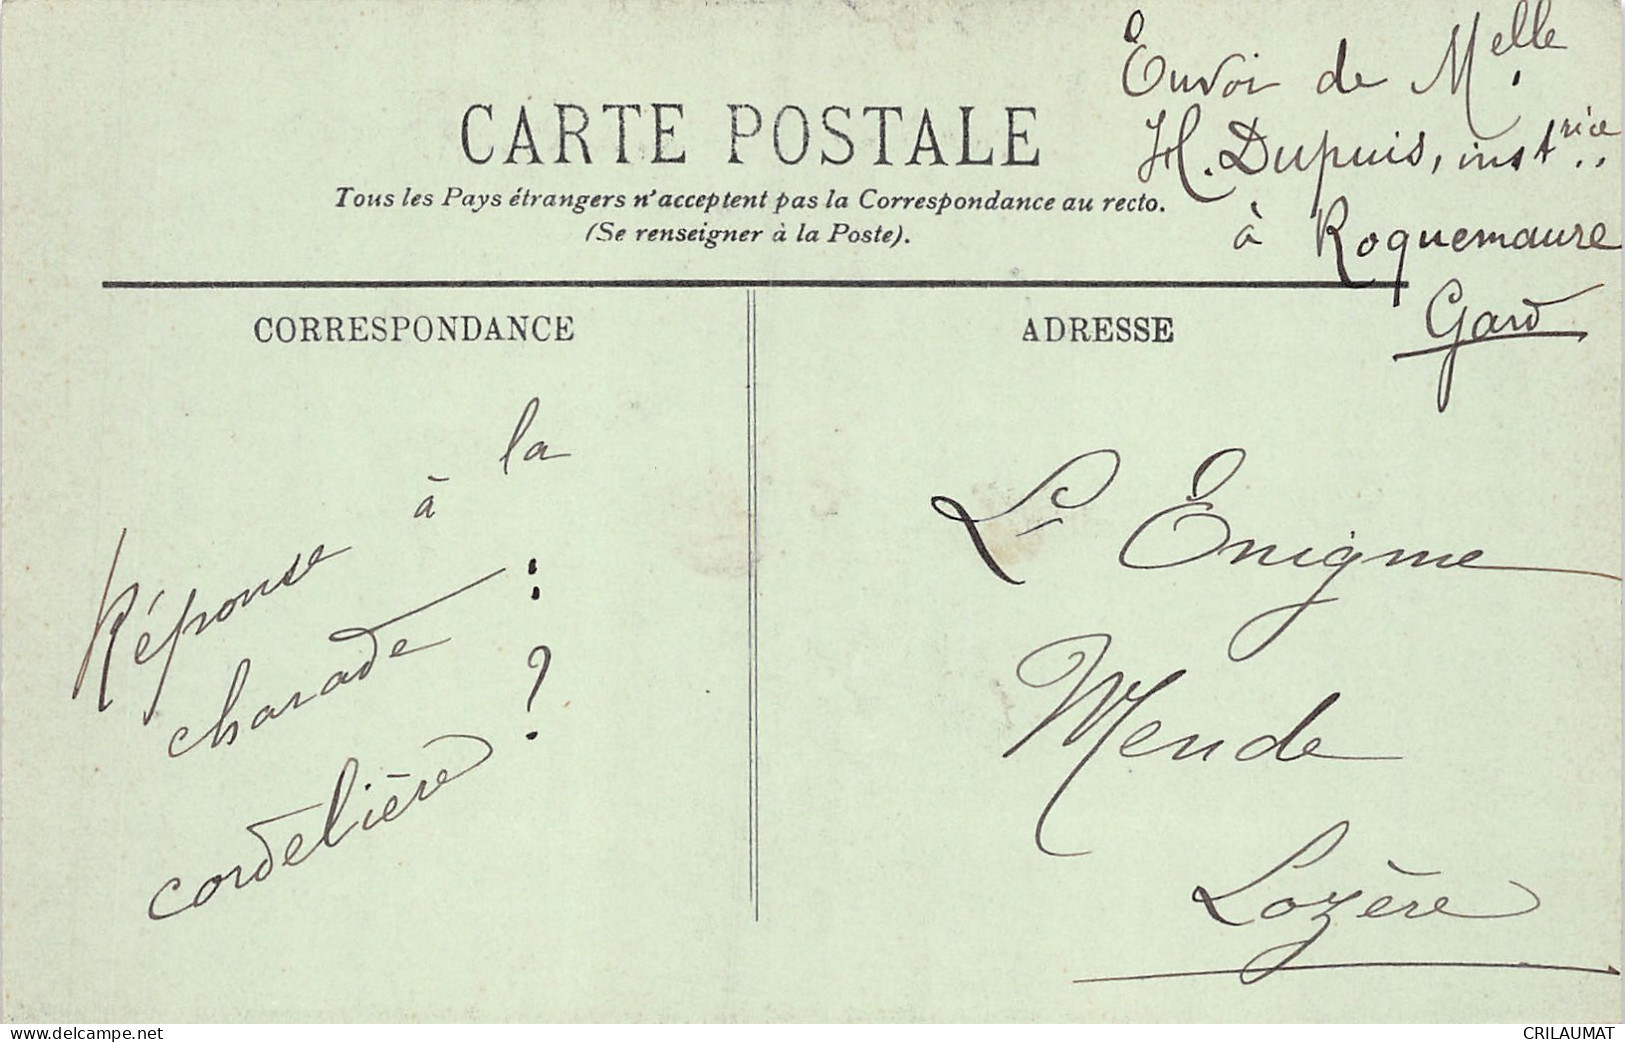 Envoi de Melle
H. Dupuis, instrice
à Roquemaure
Gard
CARTE POSTALE
Tous les Pays étrangers n'acceptent pas la Correspondance au recto.
(Se renseigner à la Poste).
CORRESPONDANCE
ADRESSE
Réponse à la
charade :
cordelière ?
L' Enigme
Mende
Lozère
www.delcampe.net
CRILAUMAT